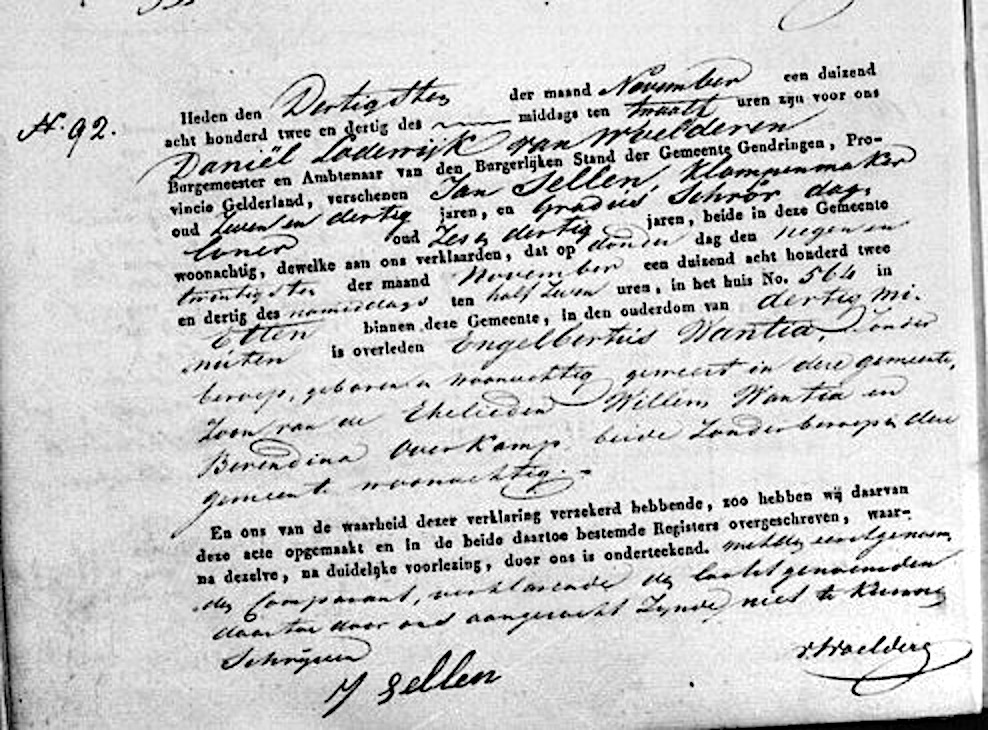 N. 92.
Heden den Dertigsten der maand November een duizend
acht honderd twee en dertig des middags ten twaalf uren zijn voor ons
Daniël Lodewijk van Woelderen
Burgemeester en Ambtenaar van den Burgerlijken Stand der Gemeente Gendringen, Pro-
vincie Gelderland, verschenen Jan Sellen, Klompenmaker
oud Zeven en dertig jaren, en Gradus Schrör dag-
loner oud Zes en dertig jaren, beide in deze Gemeente
woonachtig, dewelke aan ons verklaarden, dat op donder dag den negen en
twintigsten der maand November een duizend acht honderd twee
en dertig des namiddags ten half Zeven uren, in het huis No. 564 in
Etten binnen deze Gemeente, in den ouderdom van dertig mi-
nuten is overleden Engelbertus Wantia, Zonder
beroep, geboren en woonachtig geweest in deze gemeente,
Zoon van de Ehelieden Willem Wantia en
Berendina Overkamp beide Zonder beroep in deze
gemeente woonachtig.
En ons van de waarheid dezer verklaring verzekerd hebbende, zoo hebben wij daarvan
deze acte opgemaakt en in de beide daartoe bestemde Registers overgeschreven, waar-
na dezelve, na duidelijke voorlezing, door ons is onderteekend. met den eerstgenoemden
Comparant, verklarende de laatstgenoemden
daartoe door ons aangezocht Zijnde, niet te Kunnen
Schrijven
J Sellen
v Woelderen